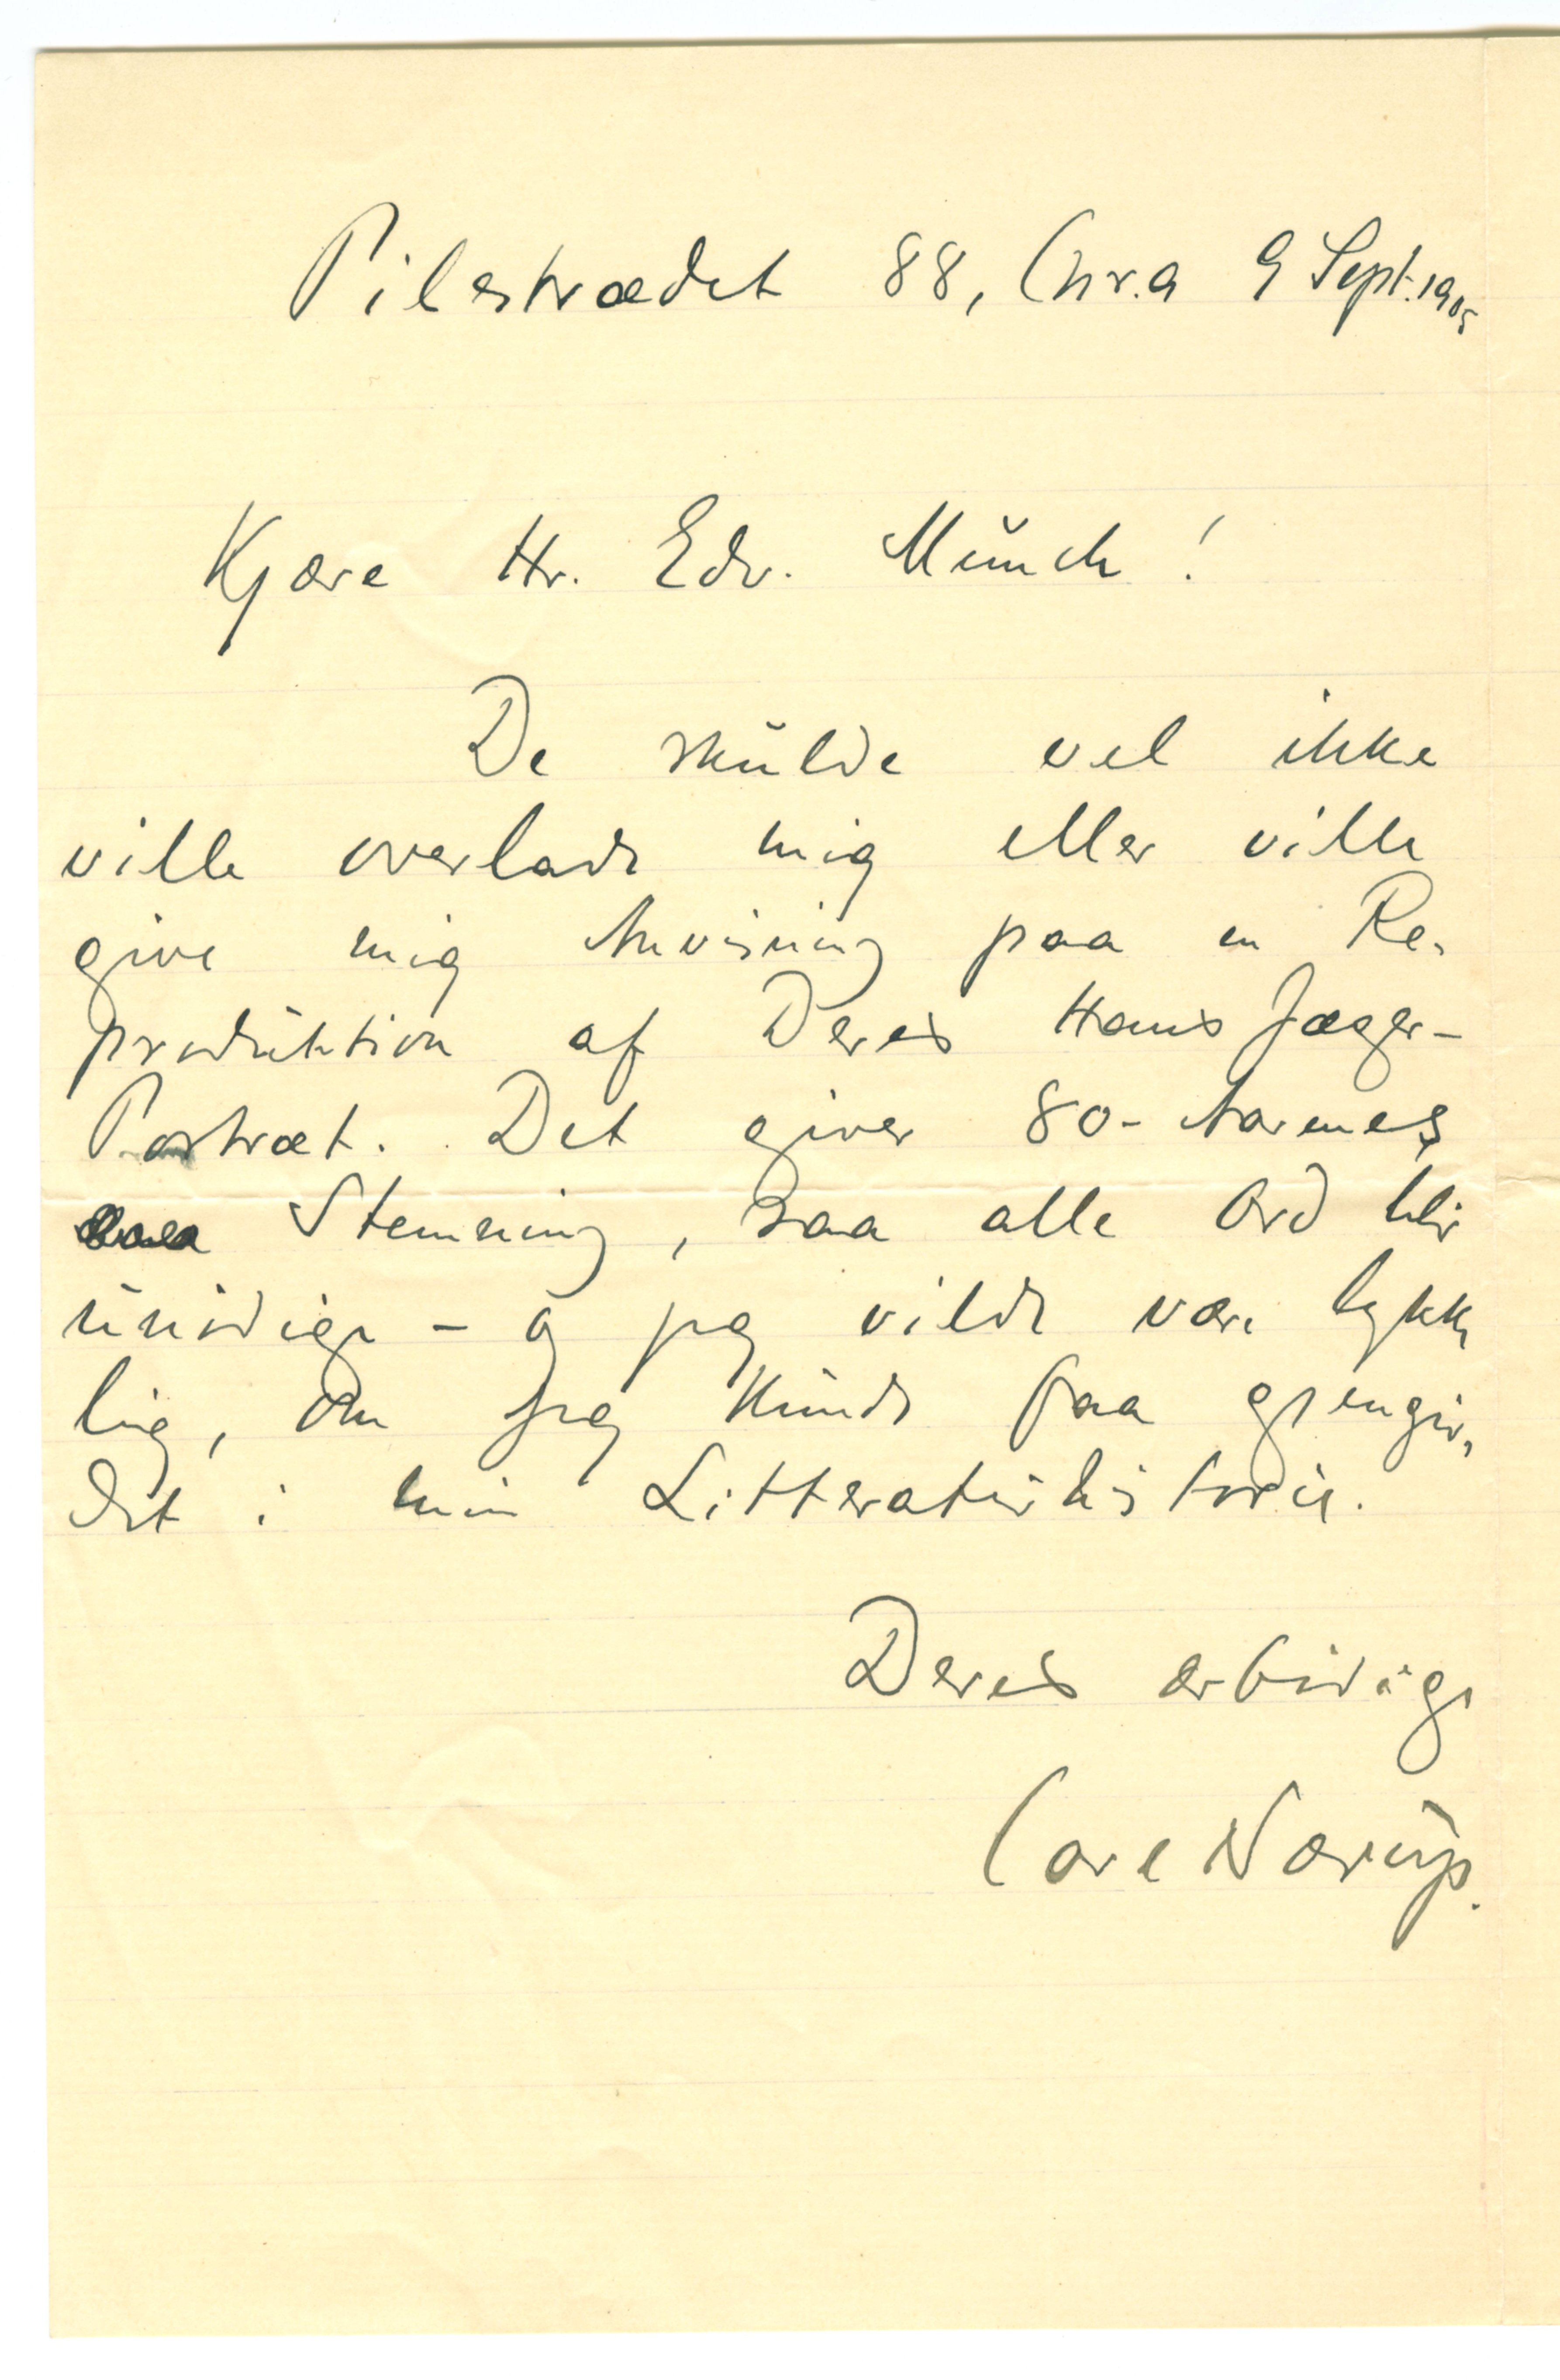 Pilestrædet 88, Chr.a 9 Sept. 1905
Kjære Hr. Edv. Munch!
De skulde vel ikke
ville overlade mig eller ville
give mig Anvisning paa en Re-
produktion af Deres Hans Jæger-
Portræt. Det giver 80-Aarenes
Stemning, saa alle Ord blir
unødige – og jeg vilde være lykke
lig, om jeg kunde faa gjengiv-
det i min Litteraturhistorie.
Deres ærbødige
Carl Nærup.